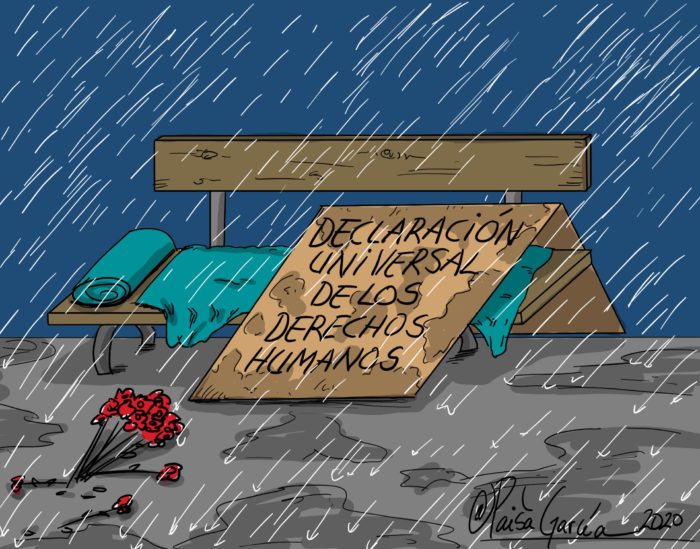 DECLARACIÓN
UNIVERSAL
DE LOS
DERECHOS
HUMANOS
@Paisa García 2020